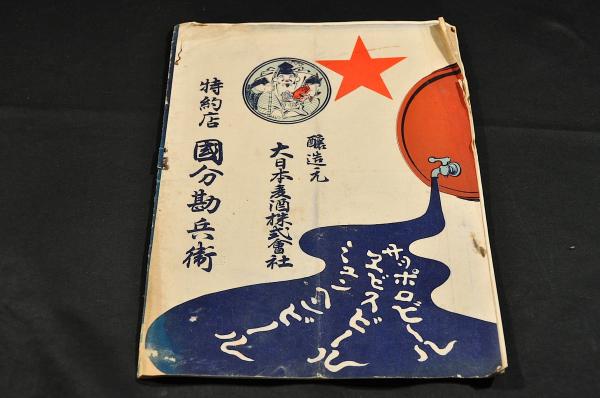 醸造元
大日本麦酒株式會社
特約店
國分勘兵衛
サッポロビール
ヱビスビール
ビール